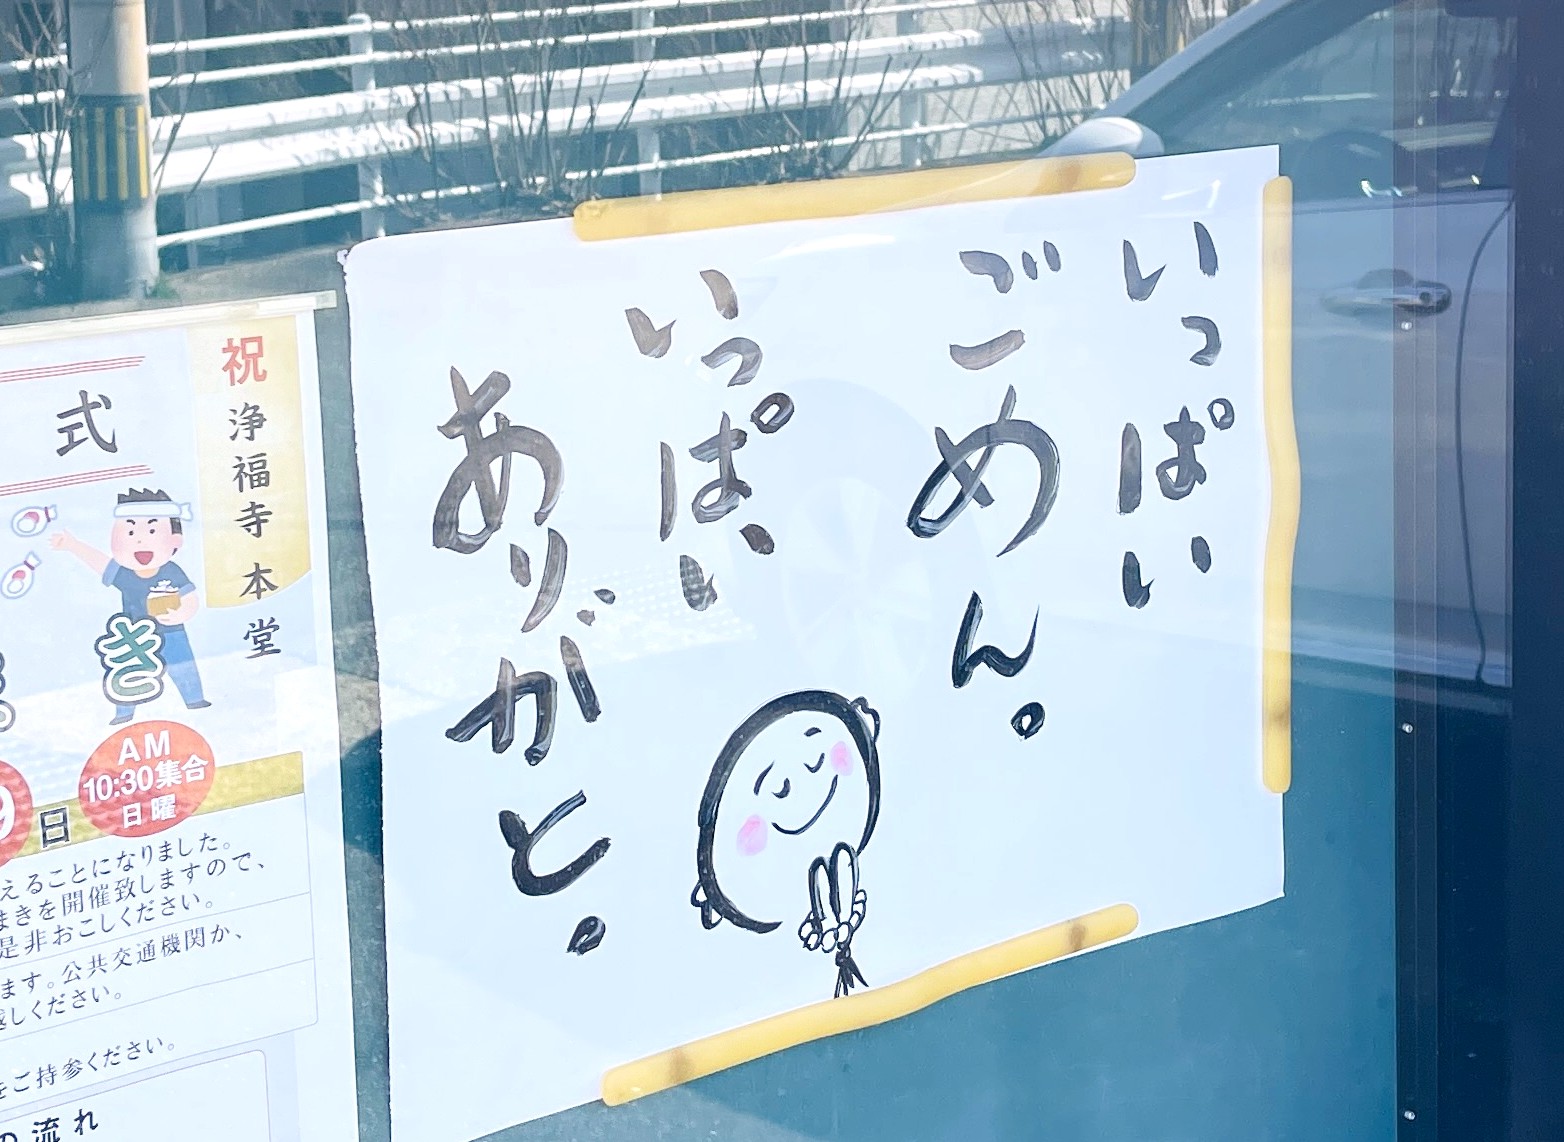 いっぱい
ごめん。
いっぱい
ありがと。
祝
浄福寺 本堂
式
き
日
AM
10:30集合
日曜
えることになりました。
まきを開催致しますので、
是非おこしください。
ます。公共交通機関か、
越しください。
をご持参ください。
の流れ